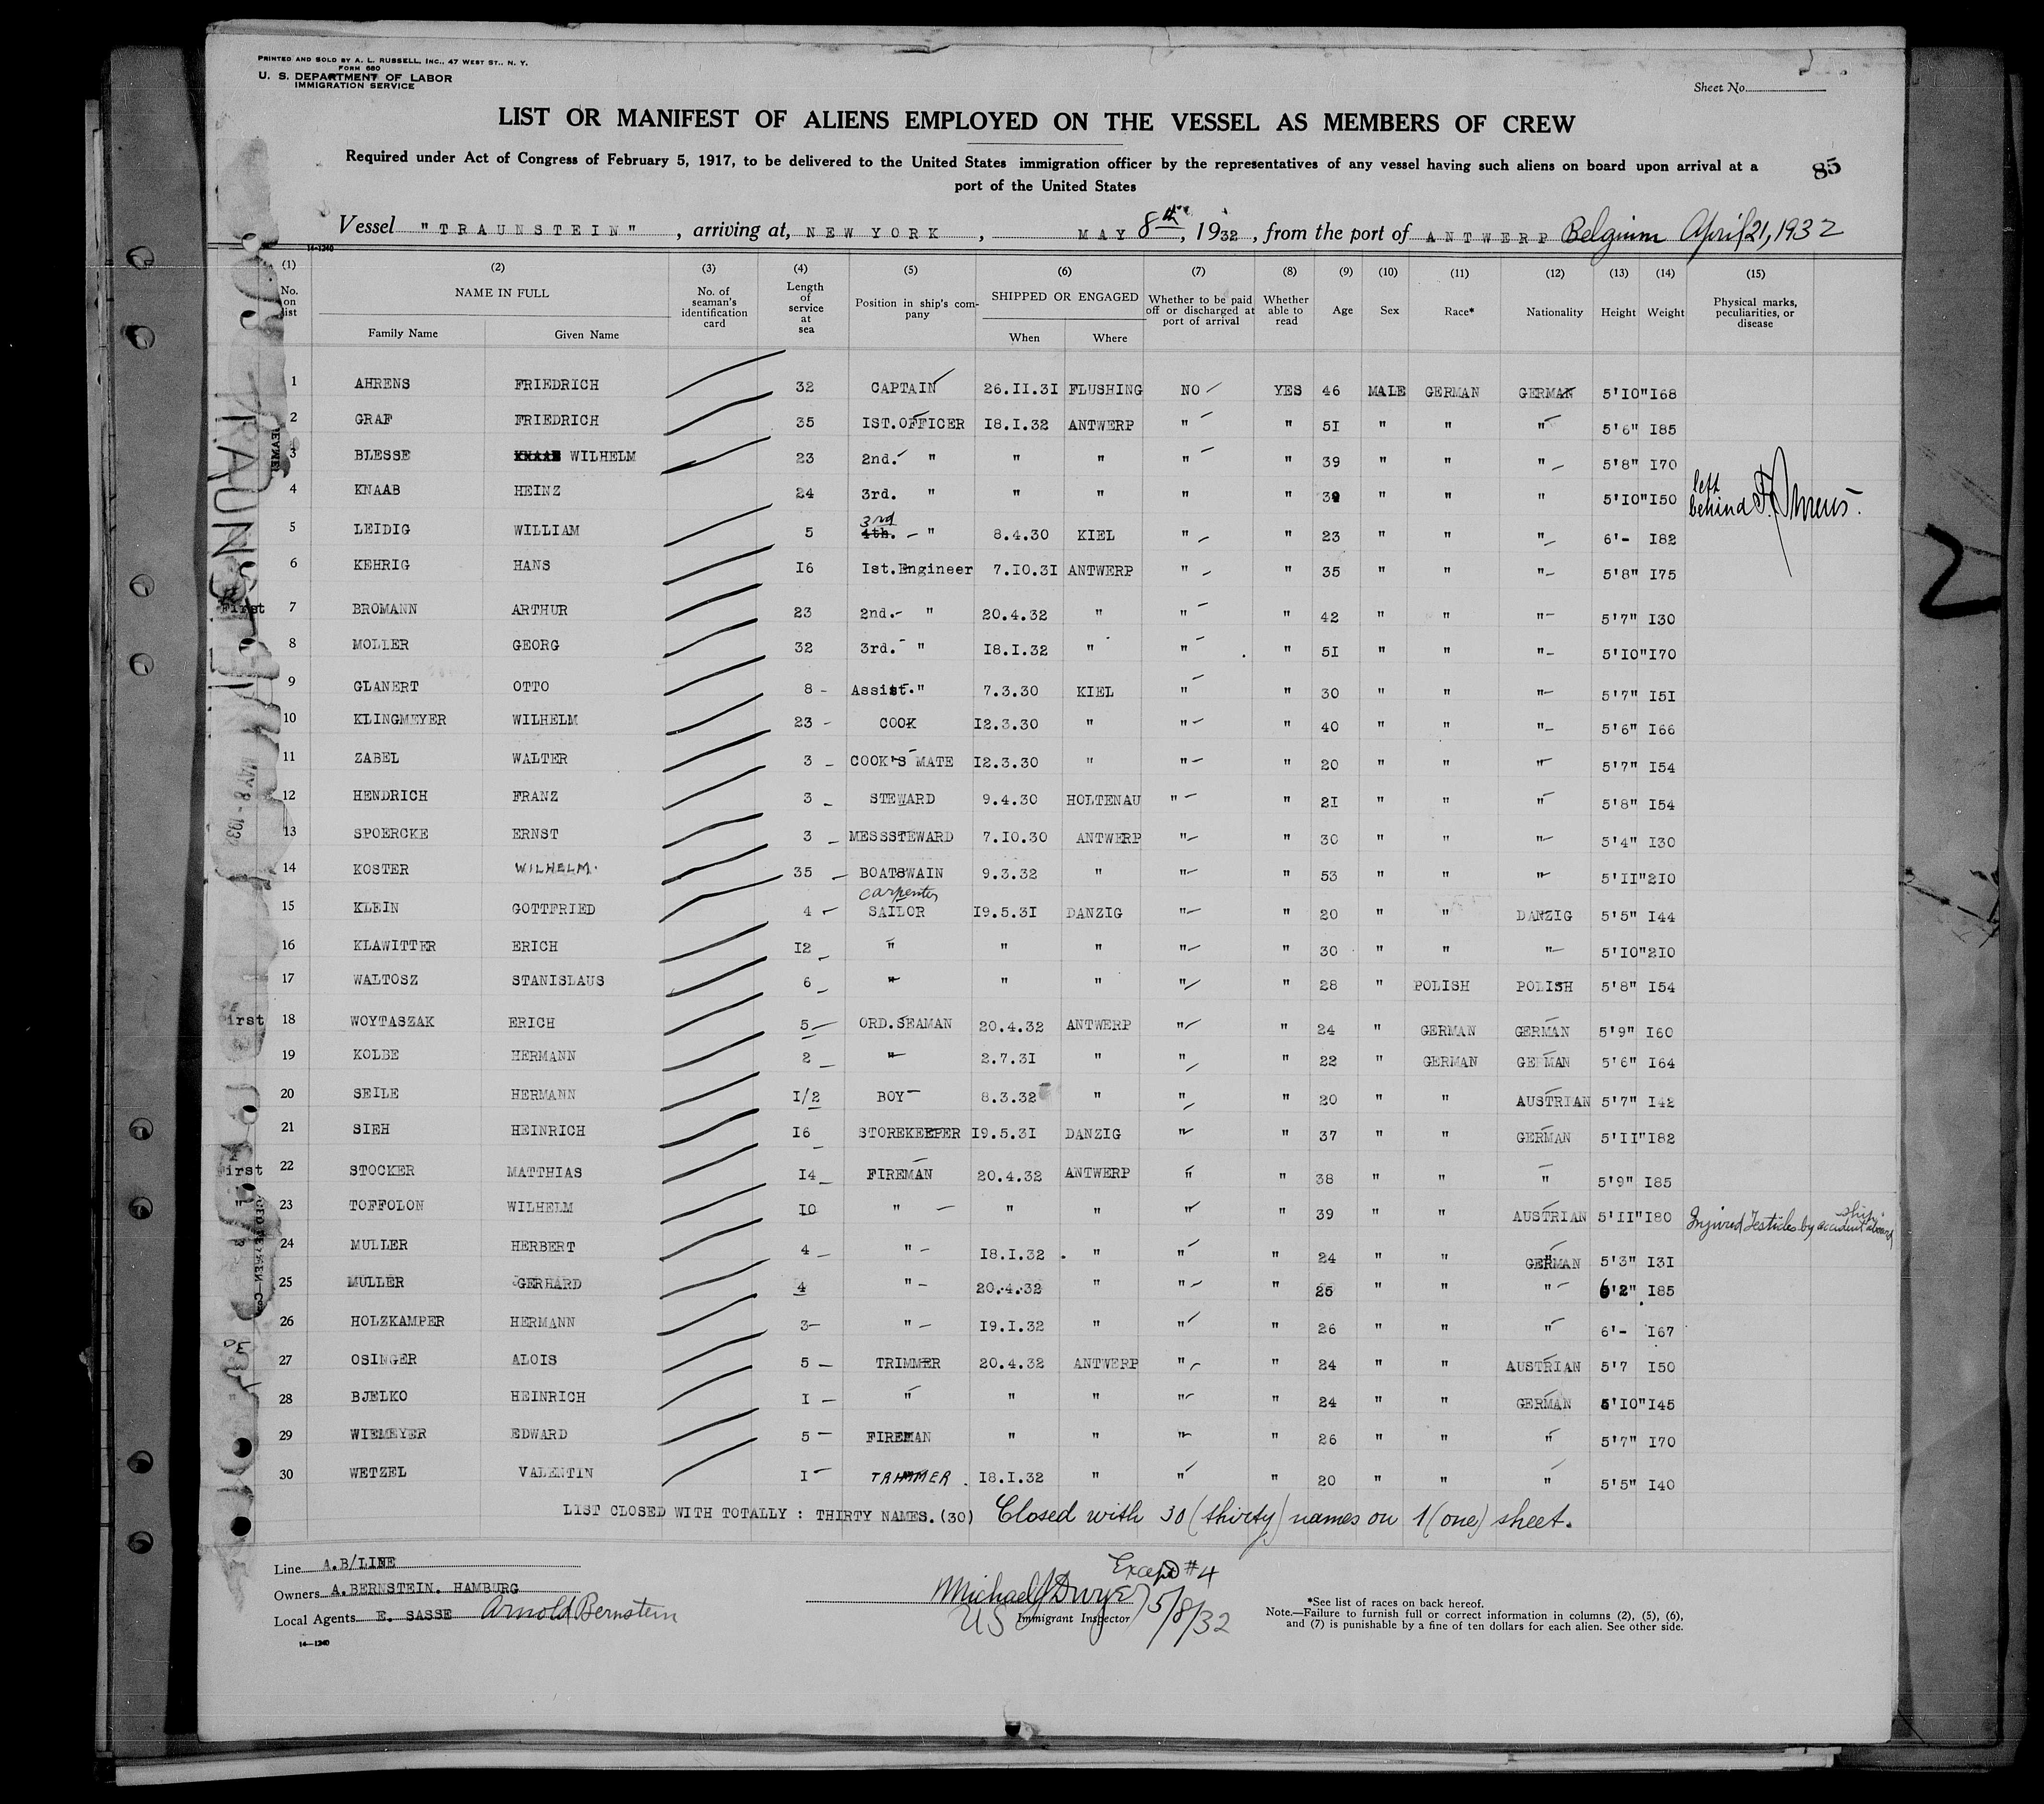 PRINTED AND SOLD BY A. L. RUSSELL, INC., 47 WEST ST., N. Y.
FORM 680
U. S. DEPARTMENT OF LABOR
IMMIGRATION SERVICE
Sheet No.
LIST OR MANIFEST OF ALIENS EMPLOYED ON THE VESSEL AS MEMBERS OF CREW
Required under Act of Congress of February 5, 1917, to be delivered to the United States immigration officer by the representatives of any vessel having such aliens on board upon arrival at a
port of the United States
85
Vessel "TRAUNSTEIN", arriving at, NEW YORK, MAY 8th, 1932, from the port of ANTWERP Belgium April 21, 1932
14-1240
(1) (2) (3) (4) (5) (6) (7) (8) (9) (10) (11) (12) (13) (14) (15)
No. on list NAME IN FULL Family Name Given Name No. of seaman's identification card Length of service at sea Position in ship's company SHIPPED OR ENGAGED When Where Whether to be paid off or discharged at port of arrival Whether able to read Age Sex Race* Nationality Height Weight Physical marks, peculiarities, or disease
1 AHRENS FRIEDRICH 32 CAPTAIN 26.II.3I FLUSHING NO YES 46 MALE GERMAN GERMAN 5'IO" I68
2 GRAF FRIEDRICH 35 IST.OFFICER I8.I.32 ANTWERP " " 5I " " " 5'6" I85
3 BLESSE WILHELM 23 2nd. " " " " " 39 " " " 5'8" I70
4 KNAAB HEINZ 24 3rd. " " " " " 39 " " " 5'IO" I50 left behind
5 LEIDIG WILLIAM 5 3rd 4th. " 8.4.30 KIEL " " 23 " " " 6'- I82
6 KEHRIG HANS I6 Ist.Engineer 7.IO.3I ANTWERP " " 35 " " " 5'8" I75
First 7 BROMANN ARTHUR 23 2nd. " 20.4.32 " " " 42 " " " 5'7" I30
8 MOLLER GEORG 32 3rd. " I8.I.32 " " " 5I " " " 5'IO" I70
9 GLANERT OTTO 8 Assist. " 7.3.30 KIEL " " 30 " " " 5'7" I5I
10 KLINGMEYER WILHELM 23 COOK I2.3.30 " " " 40 " " " 5'6" I66
11 ZABEL WALTER 3 COOK'S MATE I2.3.30 " " " 20 " " " 5'7" I54
12 HENDRICH FRANZ 3 STEWARD 9.4.30 HOLTENAU " " 2I " " " 5'8" I54
13 SPOERCKE ERNST 3 MESSSTEWARD 7.IO.30 ANTWERP " " 30 " " " 5'4" I30
14 KOSTER WILHELM. 35 BOATSWAIN 9.3.32 " " " 53 " " " 5'II" 2IO
15 KLEIN GOTTFRIED 4 carpenter SAILOR I9.5.3I DANZIG " " 20 " " DANZIG 5'5" I44
16 KLAWITTER ERICH I2 " " " " " 30 " " " 5'IO" 2IO
17 WALTOSZ STANISLAUS 6 " " " " " 28 " POLISH POLISH 5'8" I54
First 18 WOYTASZAK ERICH 5 ORD.SEAMAN 20.4.32 ANTWERP " " 24 " GERMAN GERMAN 5'9" I60
19 KOLBE HERMANN 2 " 2.7.3I " " " 22 " GERMAN GERMAN 5'6" I64
20 SEILE HERMANN I/2 BOY 8.3.32 " " " 20 " " AUSTRIAN 5'7" I42
21 SIEH HEINRICH I6 STOREKEEPER I9.5.3I DANZIG " " 37 " " GERMAN 5'II" I82
First 22 STOCKER MATTHIAS I4 FIREMAN 20.4.32 ANTWERP " " 38 " " " 5'9" I85
" 23 TOFFOLON WILHELM IO " " " " " 39 " " AUSTRIAN 5'II" I80 Injured Testicles by accident aboard ship
24 MULLER HERBERT 4 " I8.I.32 " " " 24 " " GERMAN 5'3" I3I
25 MULLER GERHARD 4 " 20.4.32 " " " 25 " " " 6'2" I85
26 HOLZKAMPER HERMANN 3 " I9.I.32 " " " 26 " " " 6'- I67
27 OSINGER ALOIS 5 TRIMMER 20.4.32 ANTWERP " " 24 " " AUSTRIAN 5'7 I50
28 BJELKO HEINRICH I " " " " " 24 " " GERMAN 5'IO" I45
29 WIEMEYER EDWARD 5 FIREMAN " " " " 26 " " " 5'7" I70
30 WETZEL VALENTIN I TRIMMER. I8.I.32 " " " 20 " " " 5'5" I40
LIST CLOSED WITH TOTALLY : THIRTY NAMES.(30) Closed with 30 (thirty) names on 1 (one) sheet.
Except #4
Line A.B/LINE
Owners A.BERNSTEIN. HAMBURG
Local Agents E. SASSE Arnold Bernstein
14-1240
Michael J Dwyer 5/8/32
US Immigrant Inspector
*See list of races on back hereof.
Note.—Failure to furnish full or correct information in columns (2), (5), (6),
and (7) is punishable by a fine of ten dollars for each alien. See other side.